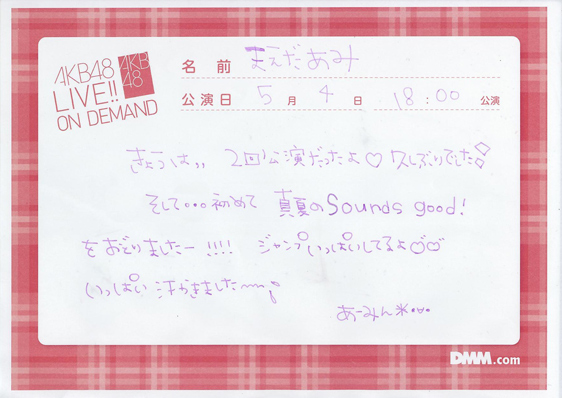 AKB48
LIVE!!
ON DEMAND
AKB
48
名前 まえだあみ
公演日 5月4日 18:00 公演
きょうは,, 2回公演だったよ♡ 久しぶりでした
そして・・・初めて 真夏のSounds good!
をおどりましたー!!!! ジャンプいっぱいしてるよ♡♡
いっぱい汗かきました〜
あーみん*・・
DMM.com